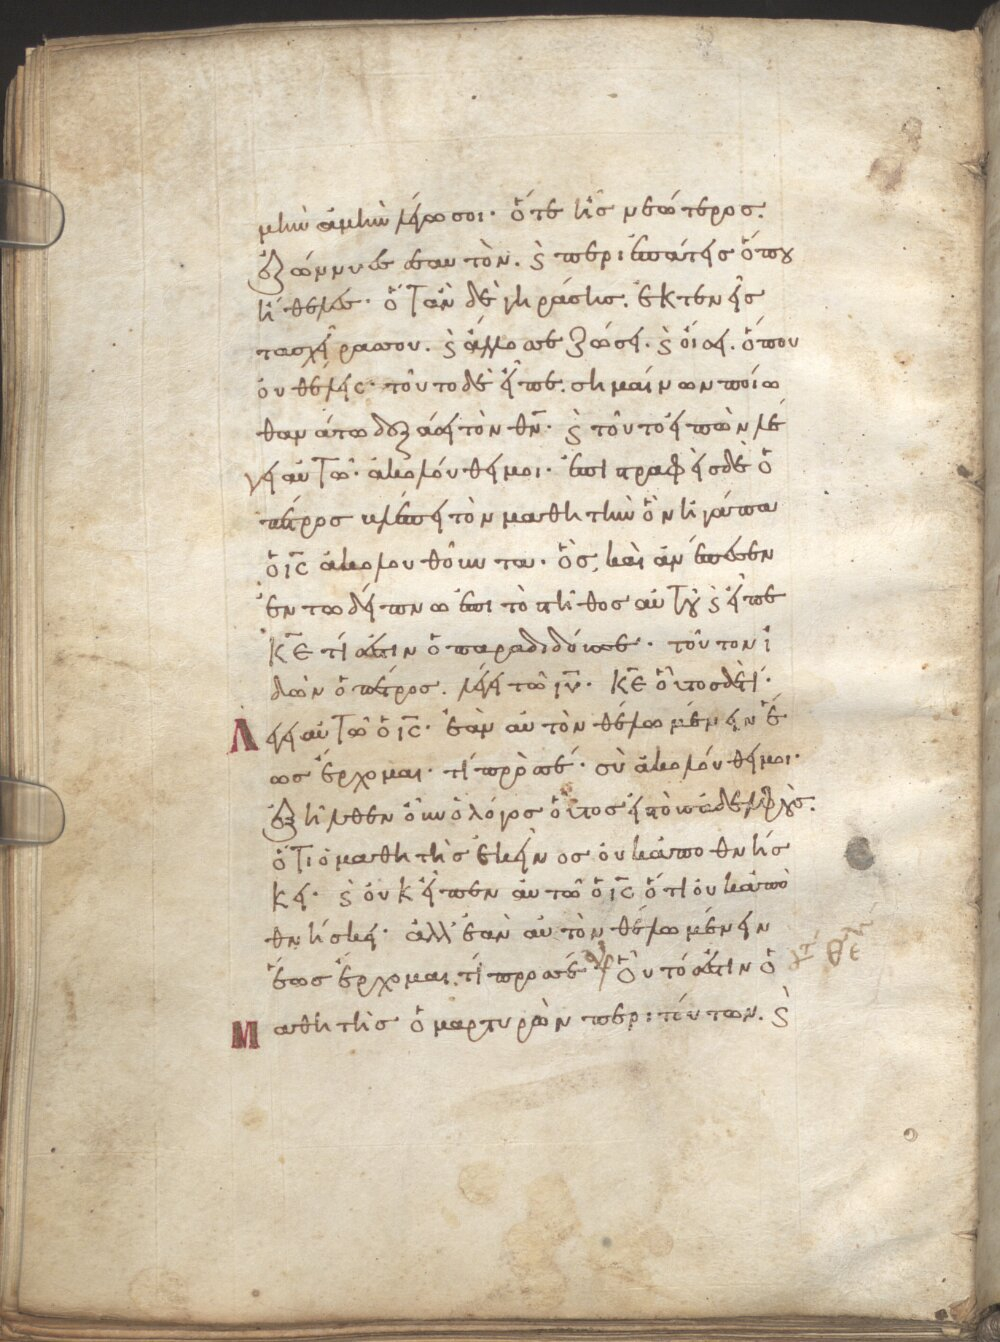 μὴν ἀμὴν λέγω σοι· ὅτε ἦς νεώτερος.
ἐζώννυες ἑαυτὸν. ϗ περιεπάτεις ὅπου
ἤθελες· ὅταν δὲ γηράσης. ἐκτενεῖς
τὰσ χεῖράς σου. ϗ ἄλλος σε ζώσει. ϗ οἴσει. ὅπου
οὐ θέλεις· τοῦτο δὲ εἶπε. σημαίνων ποίω
θανάτω δοξάσει τὸν θν̄· ϗ τοῦτο εἰπὼν λέ
γει αὐτῶ· ἀκολούθει μοι· ἐπιστραφεὶς δὲ ὁ
πέτρος βλέπει τὸν μαθητὴν ὃν ἠγάπα
ὁ ις̄ ἀκολουθοῦντα· ὃς καὶ ἀνέπεσεν
ἐν τῶ δείπνω ἐπι τὸ στῆθος αὐτοῦ ϗ εἶπε
κε̄ τί ἐστιν ὁ παραδιδούς σε· τοῦτον ἰ
δὼν ὁ πέτρος. λέγει τῶ ιῡ· κε̄ οὗτος δὲ τί·
Λέγει αὐτῶ ὁ ις̄· ἐὰν αὐτὸν θέλω μένειν ἕ
ως ἔρχομαι· τί πρὸς σέ· σὺ ἀκολούθει μοι·
ἐξῆλθεν οὖν ὁ λόγος οὗτος εἰς τοὺς ἀδελφοὺς.
ὅτι ὁ μαθητὴς ἐκεῖνος οὐκ ἀποθνήσ
κει· ϗ οὐκ εἶπεν αὐτῶ ὁ ις̄ ὅτι οὐκ ἀπο
θνήσκει· ἀλλ' ἐὰν αὐτὸν θέλω μένειν
ἕως ἔρχομαι. τί προς σέ Οὗτός ἐστιν ὁ
Μαθητὴς ὁ μαρτυρῶν περι τούτων. ϗ